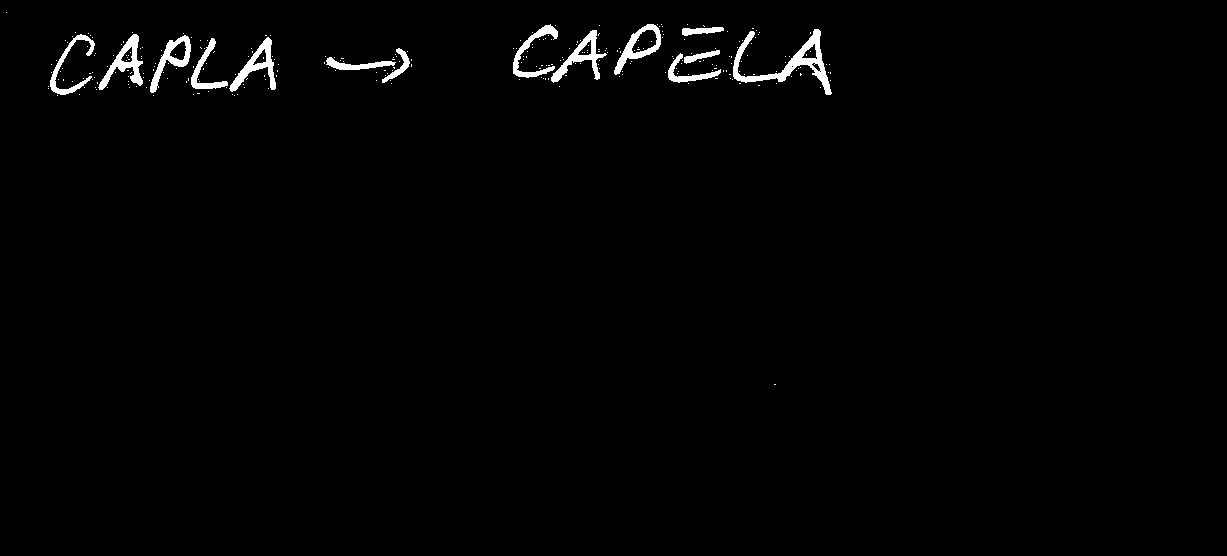 CAPLA → CAPELA